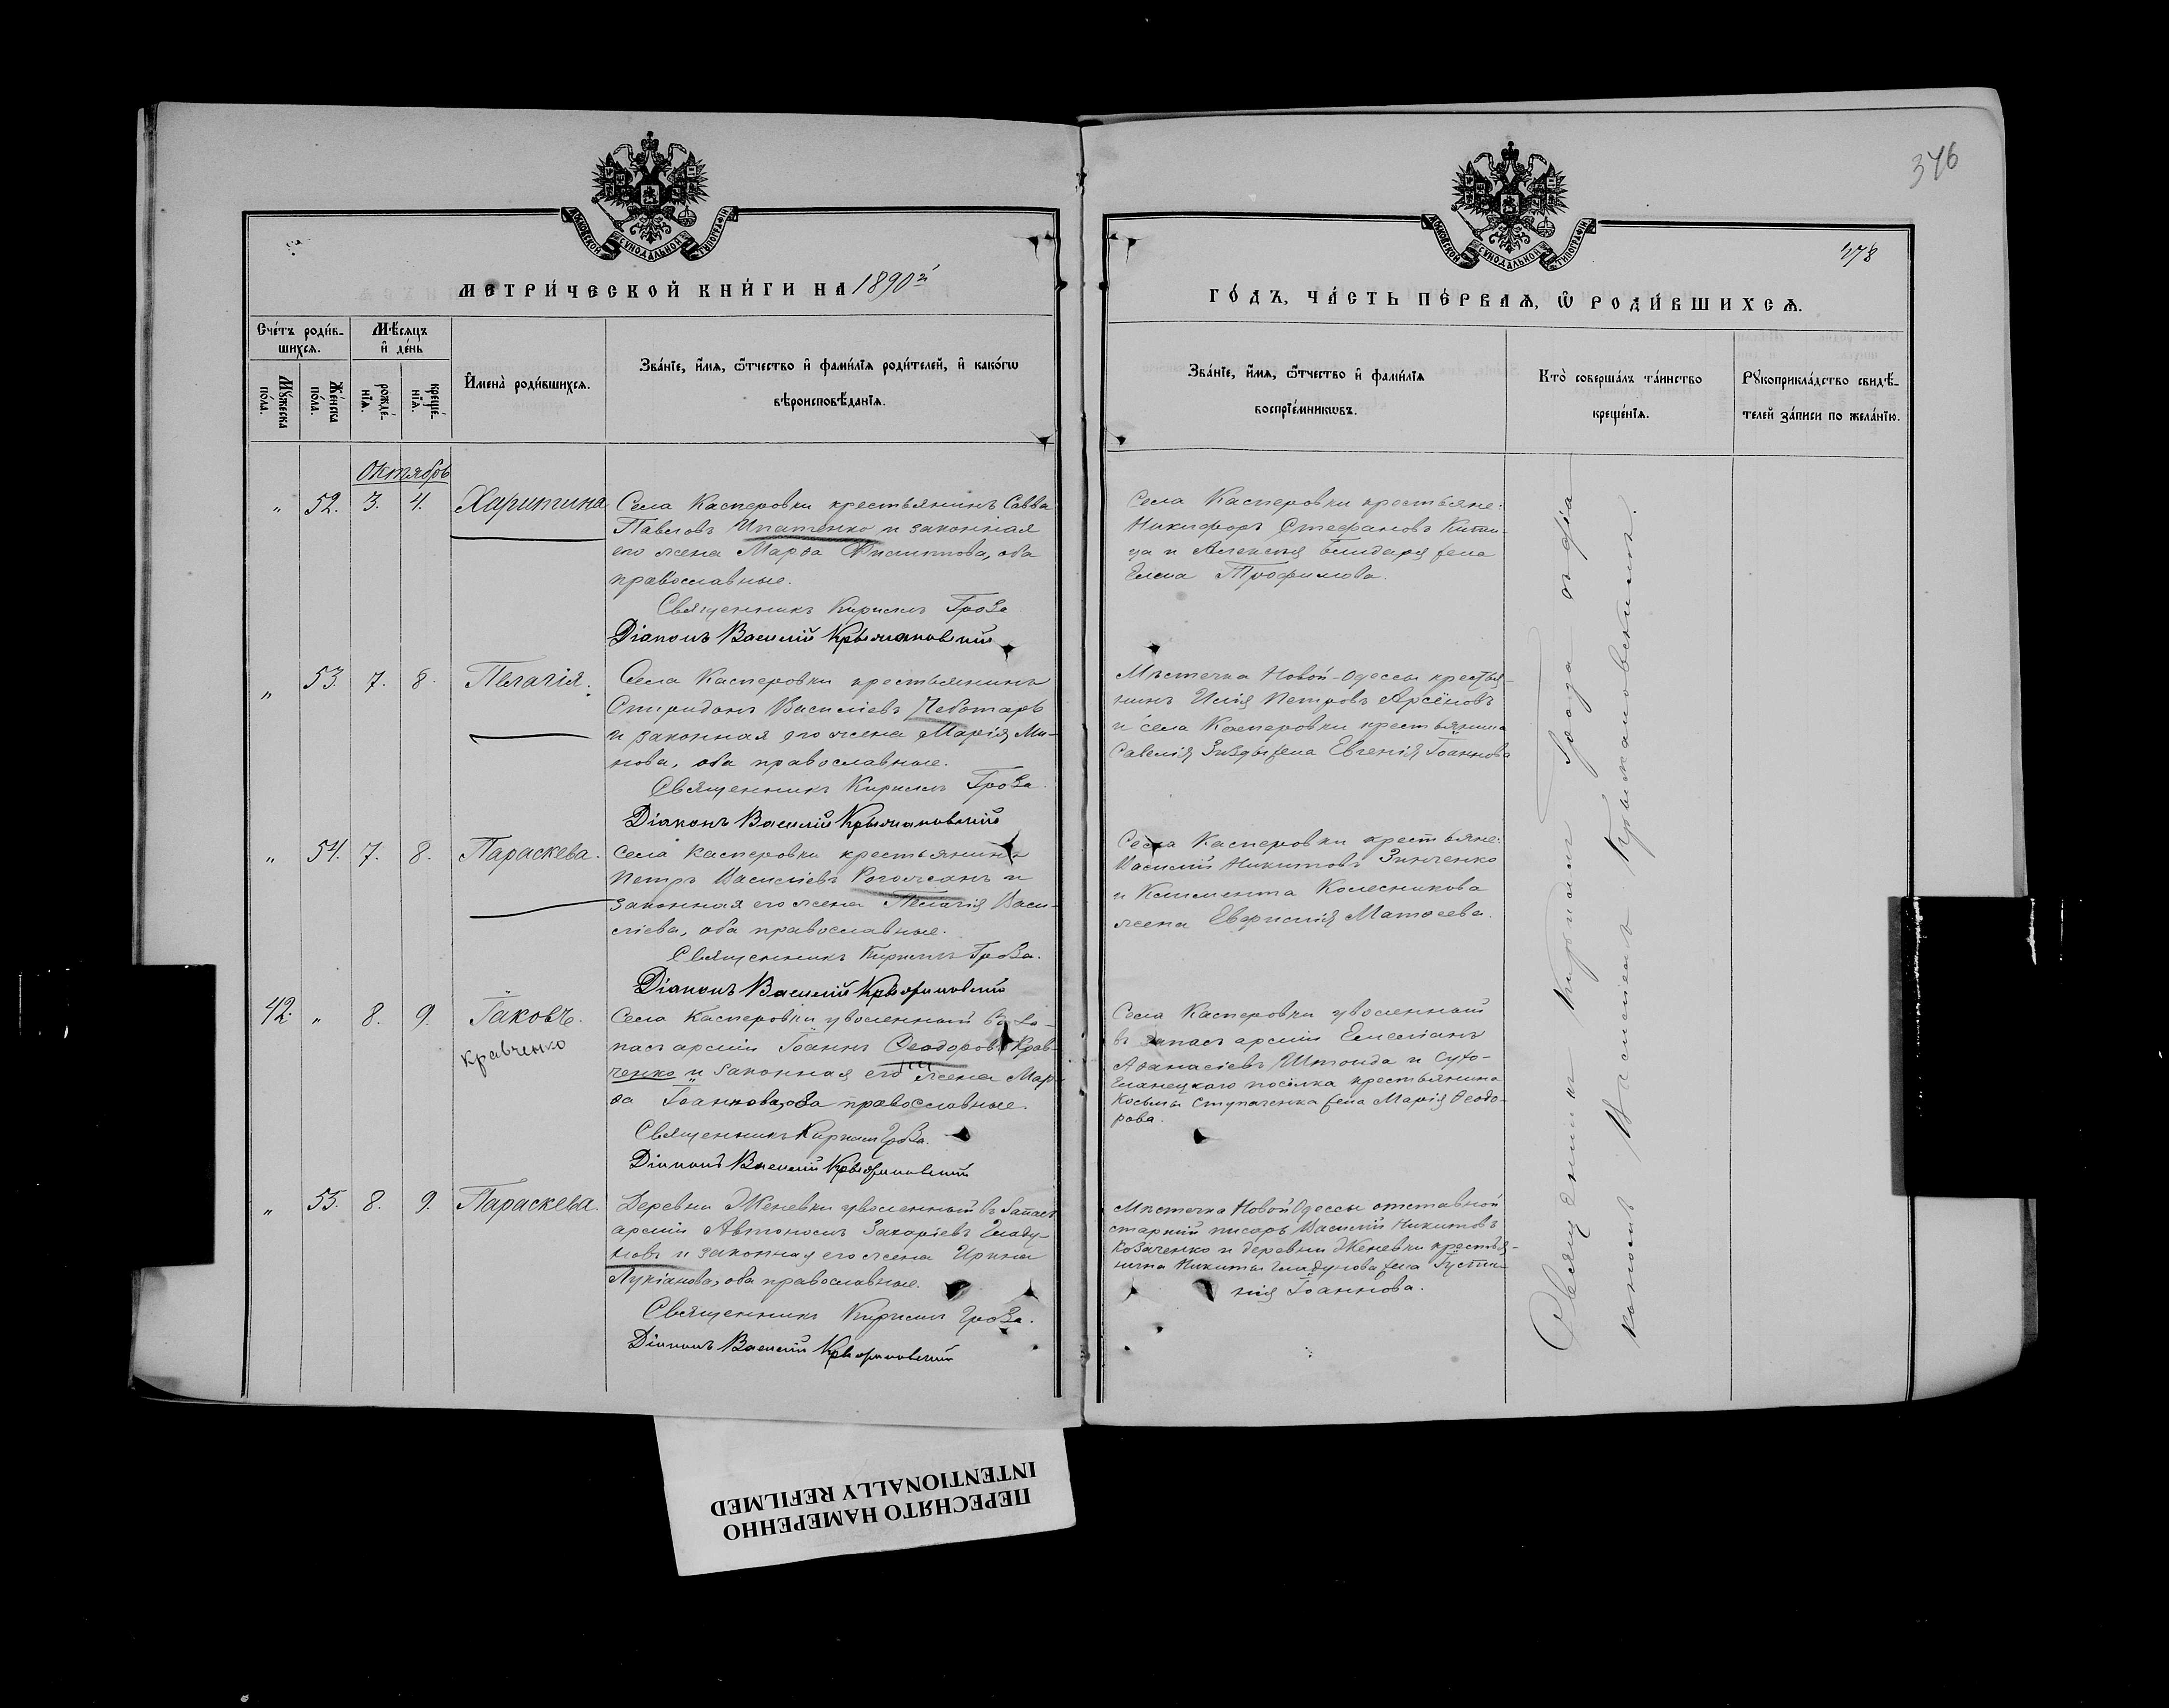 376
МОСКОВСКОЙ СѴНОДАЛЬНОЙ ТИПОГРАФІИ
МОСКОВСКОЙ СѴНОДАЛЬНОЙ ТИПОГРАФІИ
478
МЕТРИ́ЧЕСКОЙ КНИ́ГИ НА 1890й
ГО́ДЪ, ЧА́СТЬ ПЕ́РВАѦ, Ѽ РОДИ́ВШИХСѦ.
Сче́тъ роди́в-
шихсѧ.
Мѣ́сяцъ
и҆ де́нь
Мꙋ́жеска
по́ла.
Же́нска
по́ла.
рожде́-
нїѧ.
креще́-
нїѧ.
И҆мена̀ роди́вшихсѧ.
Зва́нїе, и҆́мѧ, ѻ҆́тчество и҆ фами́лїѧ роди́телей, и҆ како́гѡ
вѣроисповѣ́данїѧ.
Зва́нїе, и҆́мѧ, ѻ҆́тчество и҆ фами́лїѧ
воспрїе́мникѡвъ.
Кто̀ соверша́лъ та́инство
креще́нїѧ.
Рꙋкоприкла́дство свидѣ́-
телей за́писи по жела́нїю.
Октябрь
" 52. 3. 4. Харитина
Села Касперовки крестьянинъ Савва
Павловъ Ипатенко и законная
его жена Марѳа Филиппова, оба
православные.
Священникъ Кириллъ Гроза
Діаконъ Василій Крыжановскій
Села Касперовки крестьяне:
Никифоръ Стефановъ
и Алексія жена
Елена Трофимова.
" 53. 7. 8. Пелагія.
Села Касперовки крестьянинъ
Спиридонъ Василіевъ Чеботарь
и законная его жена Марія Ми-
нова, оба православные.
Священникъ Кириллъ Гроза.
Діаконъ Василій Крыжановскій
Мѣстечка Новой-Одессы крестья-
нинъ Илія Петровъ Арсёновъ
и села Касперовки крестьянина
Савелія жена Евгенія Іоаннова
" 54. 7. 8. Параскева.
Села Касперовки крестьянинъ
Петръ Василіевъ Рогожанъ и
законная его жена Пелагія Васи-
ліева, оба православные.
Священникъ Кириллъ Гроза.
Діаконъ Василій Крыжановскій
Села Касперовки крестьяне:
Василій Никитовъ Зинченко
и Климента Колесникова
жена Евфимія Матѳеева.
42. " 8. 9. Іаковъ.
Кравченко
Села Касперовки уволенный въ за-
пасъ арміи Іоаннъ Ѳеодоровъ Крав-
ченко и законная его жена Мар-
ѳа Іоаннова, оба православные.
Священникъ Кириллъ Гроза.
Діаконъ Василій Крыжановскій
Села Касперовки уволенный
въ запасъ арміи Емеліанъ
Аѳанасіевъ Штонда и Сухо-
Еланецкаго посёлка крестьянина
Космы Ступаченка жена Марія Ѳеодо-
рова.
" 55. 8. 9. Параскева.
Деревни Женевки уволенный въ запасъ
арміи Автономъ Захаріевъ Гладу-
новъ и законная его жена Ирина
Лукіанова, оба православные.
Священникъ Кириллъ Гроза.
Діаконъ Василій Крыжановскій
Мѣстечка Новой Одессы отставной
старшій писарь Василій Никитовъ
Козаченко и деревни Женевки крестья-
нина Никиты Гладунова жена Іусти-
нія Іоаннова.
Священникъ Кириллъ Гроза съ діа-
кономъ Василіемъ Крыжановскимъ.
ПЕРЕСНЯТО НАМЕРЕННО
INTENTIONALLY REFILMED